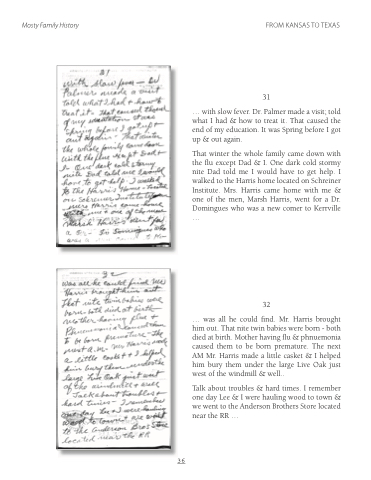 Mosty Family History
FROM KANSAS TO TEXAS
31
with slow fever — Dr
Palmer made a visit
told what I had & how to
treat it - That caused the end
of my education It was
Spring before I got up &
out again - That winter
the whole family came down
with the flu except Dad &
I - One dark cold stormy
nite Dad told me I would
have to get help. I walked
to the Harris home
on Schreiner Institute
Mrs Harris came home
with me & one of the men
Marsh Harris went for
a Dr - Domingues who
31
… with slow fever. Dr. Palmer made a visit; told
what I had & how to treat it. That caused the
end of my education. It was Spring before I got
up & out again.
That winter the whole family came down with
the flu except Dad & I. One dark cold stormy
nite Dad told me I would have to get help. I
walked to the Harris home located on Schreiner
Institute. Mrs. Harris came home with me &
one of the men, Marsh Harris, went for a Dr.
Domingues who was a new comer to Kerrville
…
32
was all he could find Mr
Harris brought him out
That nite twin babies were
born - both died at birth
Mother having flu &
Phnuemonia caused them
to be born premature - The
next A.M. Mr Harris made
a little casket & I helped
him bury them under the
large Live Oak just west
of the windmill & well
Talk about troubles &
hard times - I remember
one day Lee & I were hauling
wood to town & we went
to the Anderson Bros Store
located near the RR
32
… was all he could find. Mr. Harris brought
him out. That nite twin babies were born - both
died at birth. Mother having flu & phnuemonia
caused them to be born premature. The next
AM Mr. Harris made a little casket & I helped
him bury them under the large Live Oak just
west of the windmill & well..
Talk about troubles & hard times. I remember
one day Lee & I were hauling wood to town &
we went to the Anderson Brothers Store located
near the RR …
36